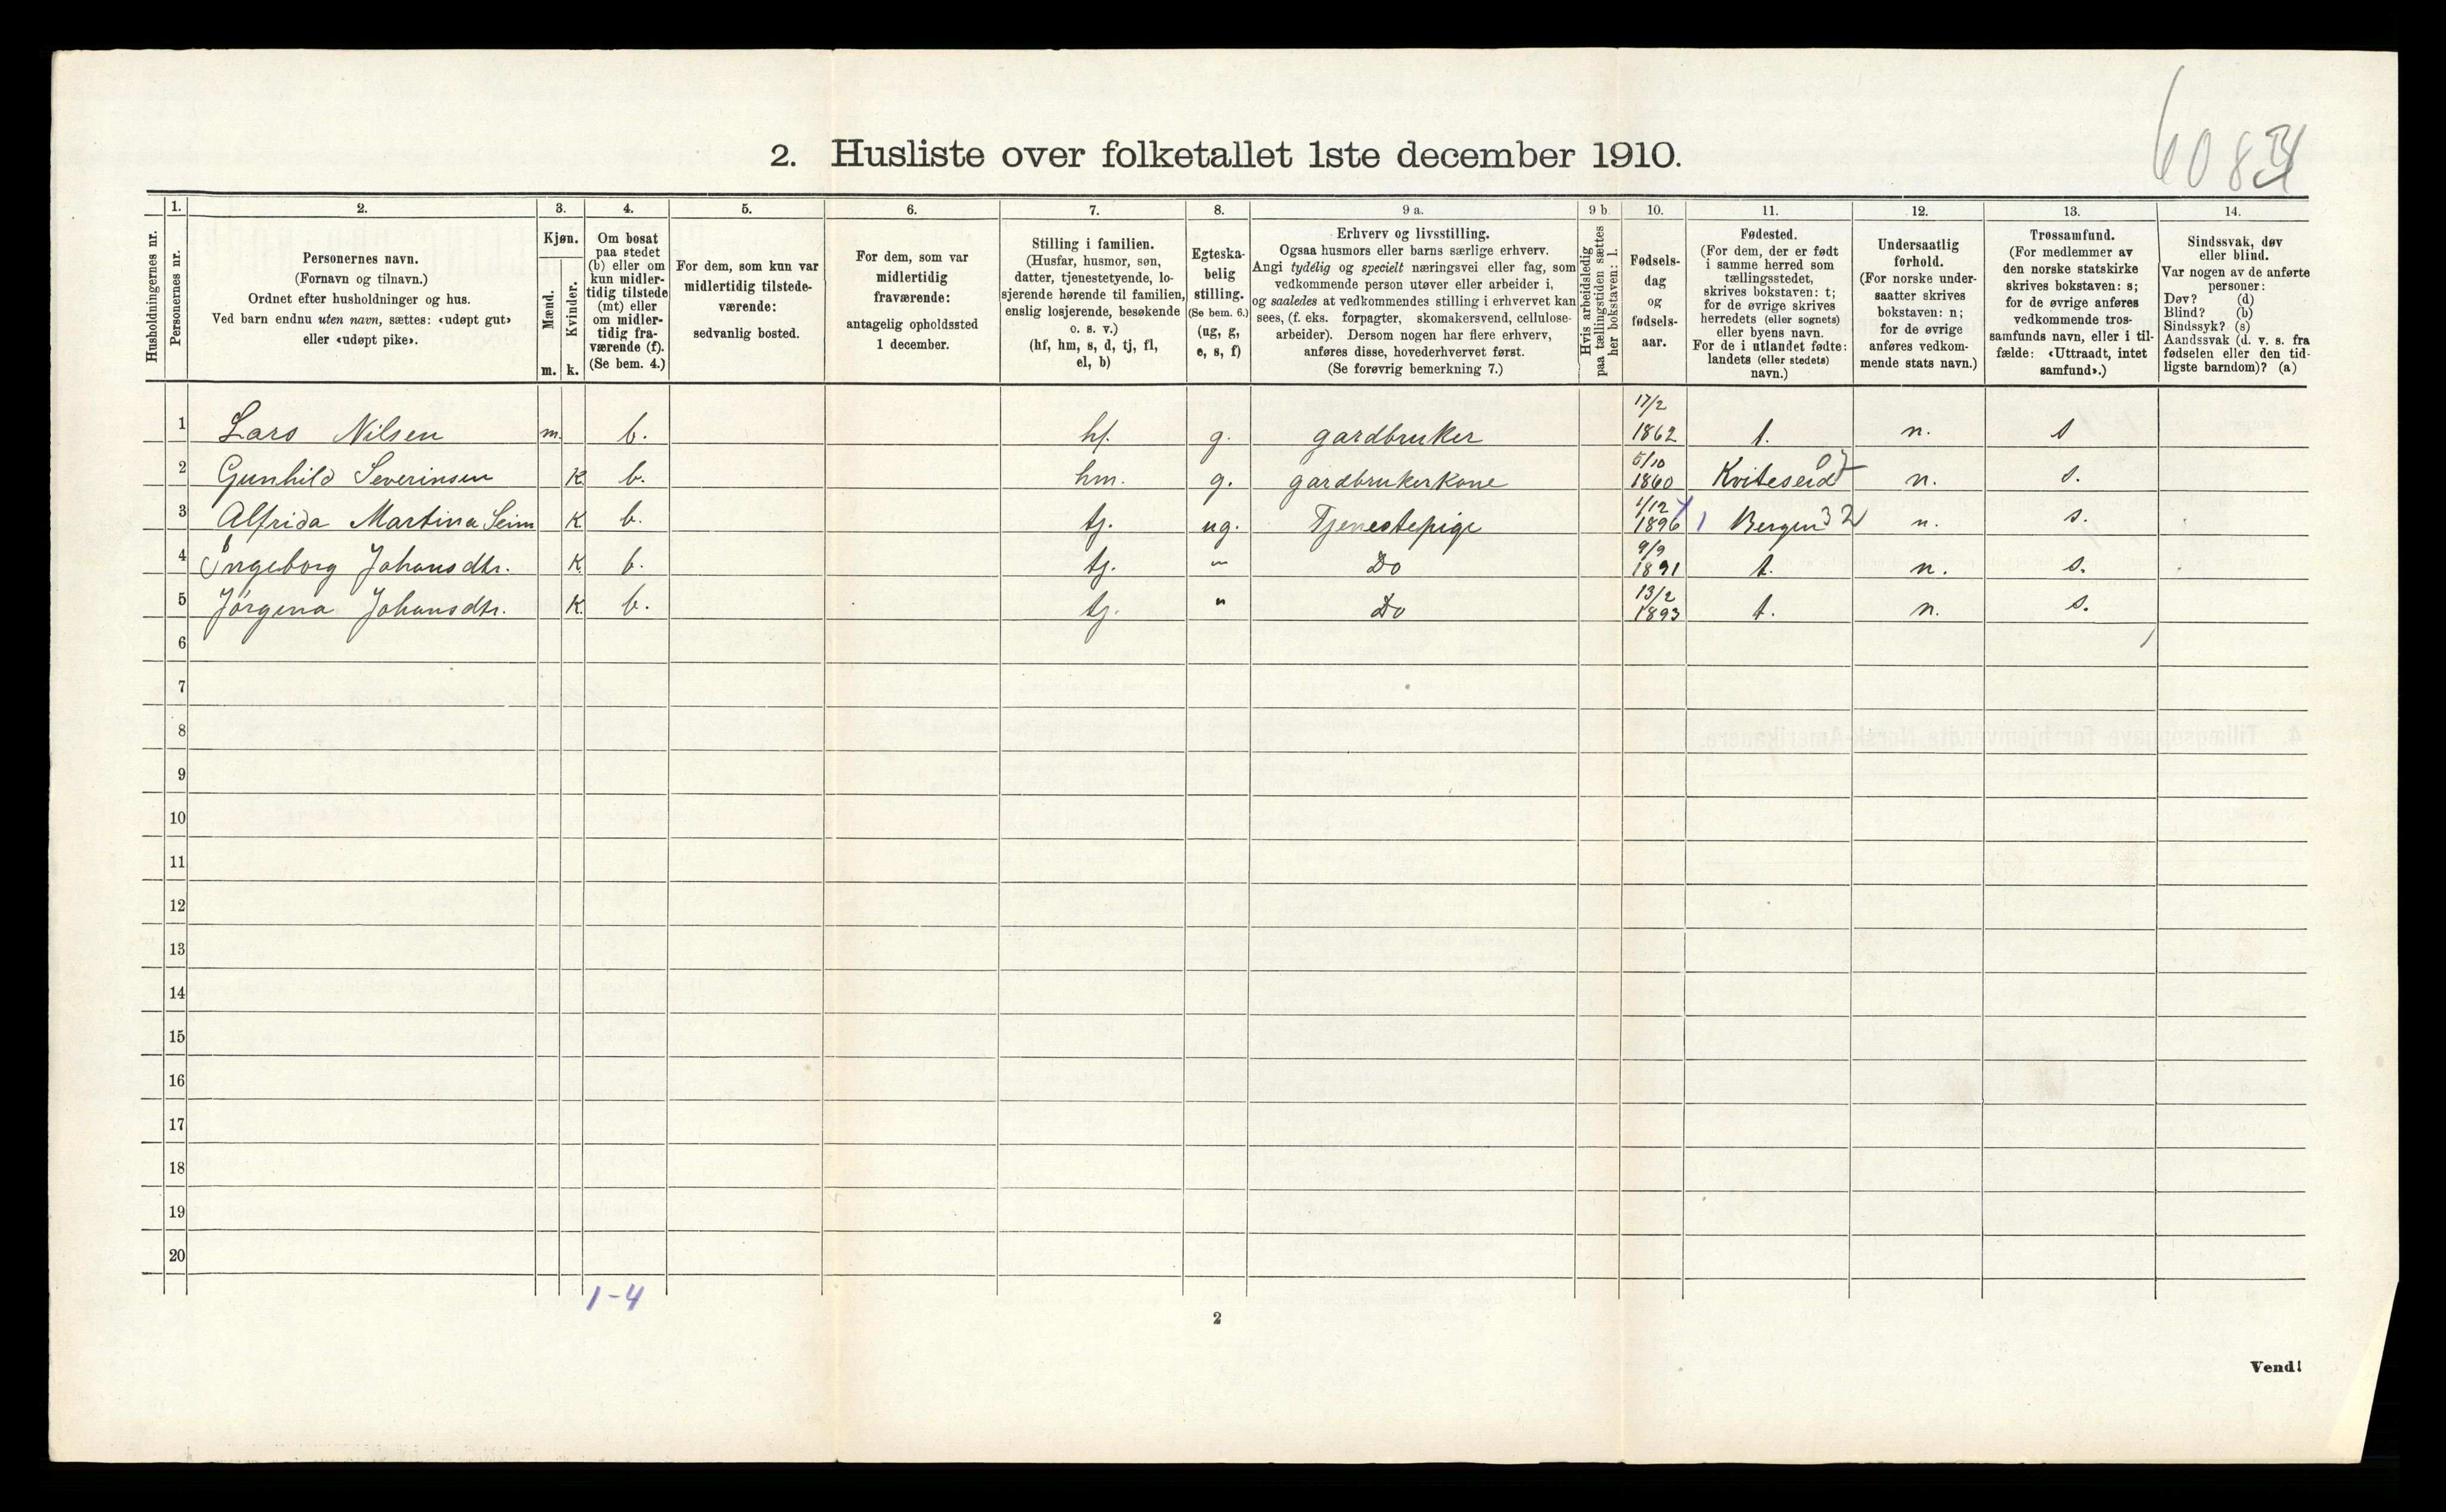 2. Husliste over folketallet 1ste december 1910.
1. 2. 3. 4. 5. 6. 7. 8. 9 a. 9 b. 10. 11. 12. 13. 14.
Husholdningernes nr.
Personernes nr.
Personernes navn.
(Fornavn og tilnavn.)
Ordnet efter husholdninger og hus.
Ved barn endnu uten navn, sættes: «udøpt gut»
eller «udøpt pike».
Kjøn.
Mænd.
Kvinder.
m. k.
Om bosat
paa stedet
(b) eller om
kun midler-
tidig tilstede
(mt) eller
om midler-
tidig fra-
værende (f).
(Se bem. 4.)
For dem, som kun var
midlertidig tilstede-
værende:
sedvanlig bosted.
For dem, som var
midlertidig
fraværende:
antagelig opholdssted
1 december.
Stilling i familien.
(Husfar, husmor, søn,
datter, tjenestetyende, lo-
sjerende hørende til familien,
enslig losjerende, besøkende
o. s. v.)
(hf, hm, s, d, tj, fl,
el, b)
Egteska-
belig
stilling.
(Se bem. 6.)
(ug, g,
e, s, f)
Erhverv og livsstilling.
Ogsaa husmors eller barns særlige erhverv.
Angi tydelig og specielt næringsvei eller fag, som
vedkommende person utøver eller arbeider i,
og saaledes at vedkommendes stilling i erhvervet kan
sees, (f. eks. forpagter, skomakersvend, cellulose-
arbeider). Dersom nogen har flere erhverv,
anføres disse, hovederhvervet først.
(Se forøvrig bemerkning 7.)
Hvis arbeidsledig
paa tællingstiden sættes
her bokstaven: l.
Fødsels-
dag
og
fødsels-
aar.
Fødested.
(For dem, der er født
i samme herred som
tællingsstedet,
skrives bokstaven: t;
for de øvrige skrives
herredets (eller sognets)
eller byens navn.
For de i utlandet fødte:
landets (eller stedets)
navn.)
Undersaatlig
forhold.
(For norske under-
saatter skrives
bokstaven: n;
for de øvrige
anføres vedkom-
mende stats navn.)
Trossamfund.
(For medlemmer av
den norske statskirke
skrives bokstaven: s;
for de øvrige anføres
vedkommende tros-
samfunds navn, eller i til-
fælde: «Uttraadt, intet
samfund».)
Sindssvak, døv
eller blind.
Var nogen av de anførte
personer:
Døv? (d)
Blind? (b)
Sindssyk? (s)
Aandssvak (d. v. s. fra
fødselen eller den tid-
ligste barndom)? (a)
1 Lars Nilsen m. b. hf. g. gardbruker 17/2 1862 t. n. s
2 Gunhild Severinsen K b. hm. g. gardbrukerkone 5/10 1860 Kviteseid n. s.
3 Alfrida Martina Seim K. b. tj. ug. Tjenestepige 1/12 1896 1 Bergen 32 n. s.
4 Ingeborg Johansdtr. K. b. tj. " Do 9/9 1891 t. n. s.
5 Jørgina Johansdtr. K. b. tj. " Do 13/2 1893 t. n. s.
6
7
8
9
10
11
12
13
14
15
16
17
18
19
20
1-4
2
Vend!